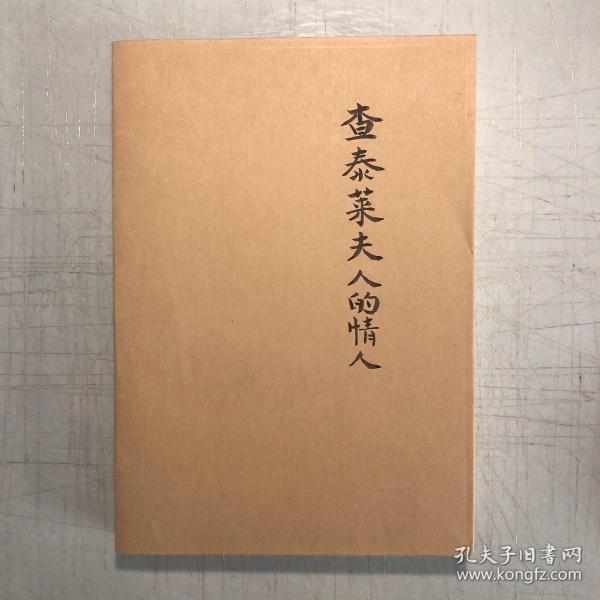 查泰莱夫人的情人
孔夫子旧書网
www.kongfz.com